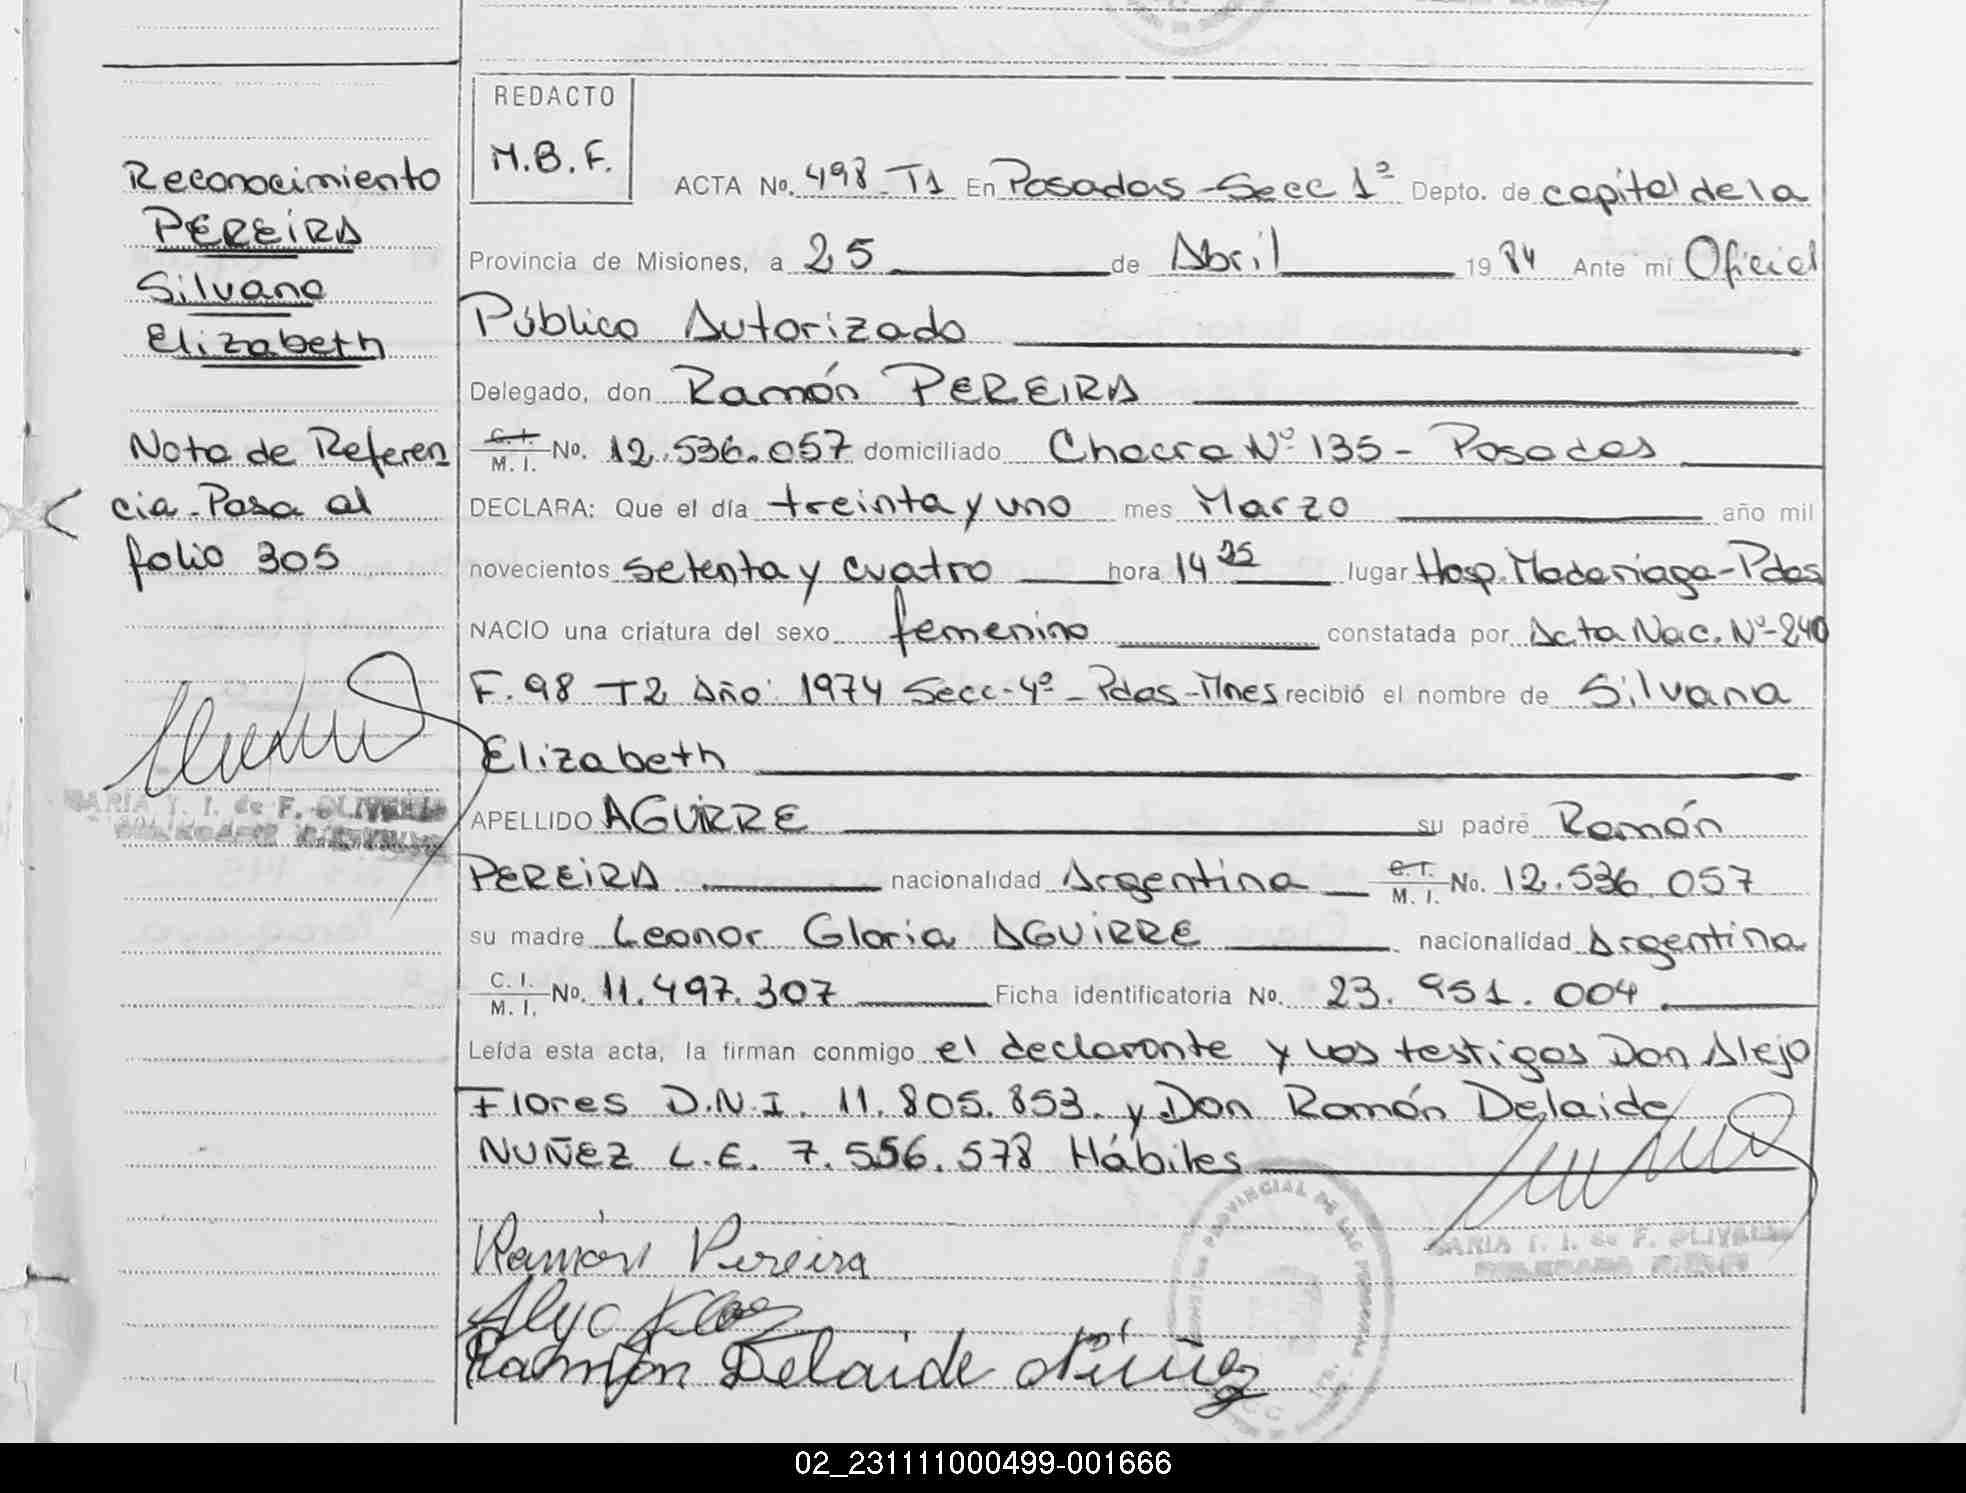 REDACTO
M.B.F.
ACTA No. 498 - T1 En Posadas - Secc 1ª Depto. de capital de la
Provincia de Misiones, a 25 de Abril 1984 Ante mi Oficial
Público Autorizado
Delegado, don Ramón PEREIRA
C.I. M.I. No. 12.536.057 domiciliado Chacra Nº 135 - Posadas
DECLARA: Que el día treinta y uno mes Marzo año mil
novecientos setenta y cuatro hora 14 25 lugar Hosp. Madariaga - Pdas
NACIO una criatura del sexo femenino constatada por Acta Nac. Nº - 240
F. 98 T2 Año 1974 Secc - 4ª - Pdas - Mnes recibió el nombre de Silvana
Elizabeth
APELLIDO AGUIRRE su padre Ramón
PEREIRA nacionalidad Argentina C.I. M.I. No. 12.536.057
su madre Leonor Gloria AGUIRRE nacionalidad Argentina
C.I. M.I. No. 11.497.307 Ficha identificatoria No. 23.951.004
Leída esta acta, la firman conmigo el declarante y los testigos Don Alejo
Flores D.N.I. 11.805.853. y Don Ramón Delaide
NUÑEZ L.E. 7.556.578 Hábiles
Ramón Pereira
Ramón Delaide Núñez
MARIA T. I. de F. OLIVEIRA
PROVINCIAL DE LAS PERSONAS
Reconocimiento
PEREIRA
Silvana
Elizabeth
Nota de Referen
cia - Pasa al
folio 305
MARIA T. I. de F. OLIVEIRA
02_231111000499-001666